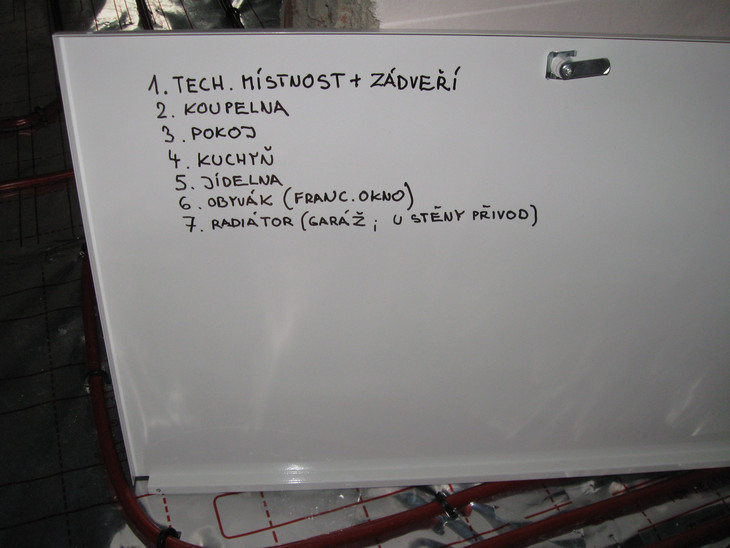 1. TECH. MÍSTNOST + ZÁDVEŘÍ
2. KOUPELNA
3. POKOJ
4. KUCHYŇ
5. JÍDELNA
6. OBYVÁK (FRANC. OKNO)
7. RADIÁTOR (GARÁŽ ; U STĚNY PŘIVOD)